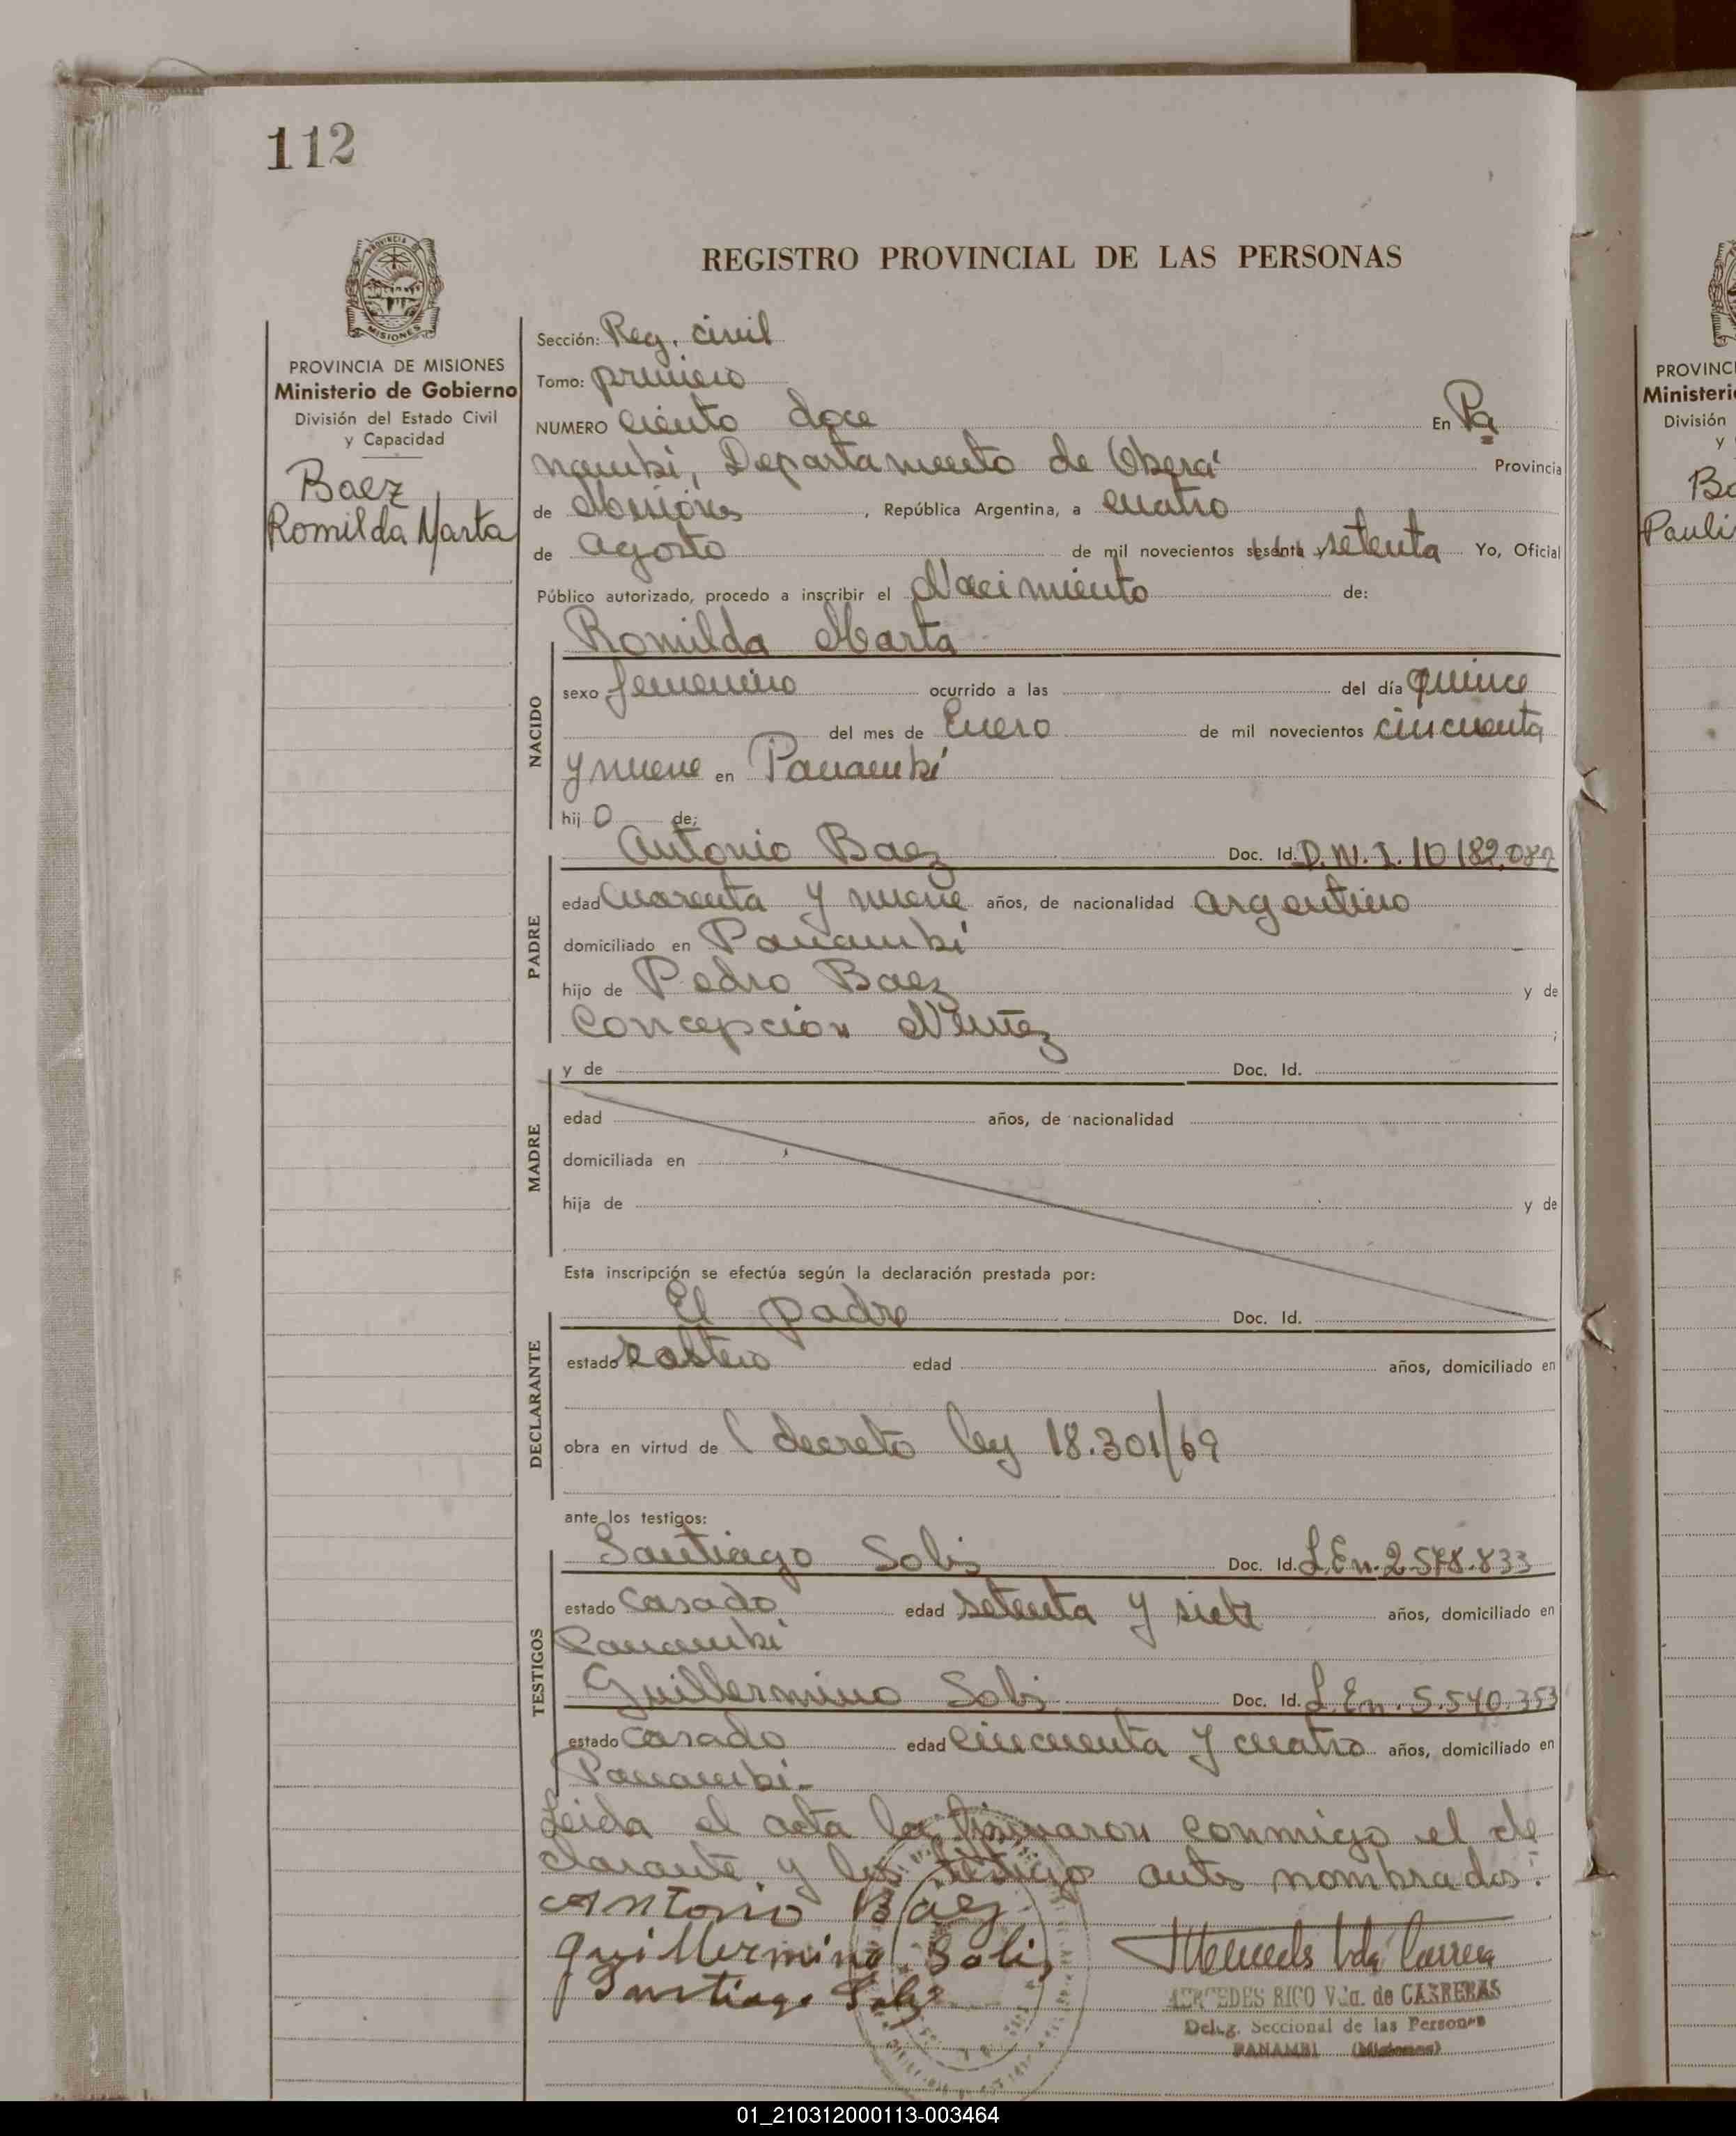 112
REGISTRO PROVINCIAL DE LAS PERSONAS
PROVINCIA DE MISIONES
Ministerio de Gobierno
División del Estado Civil
y Capacidad
Baez
Romilda Marta
Sección: Reg. civil
Tomo: primero
NUMERO ciento doce En Pa
nambí, Departamento de Oberá Provincia
de Misiones, República Argentina, a cuatro
de Agosto de mil novecientos sesenta y setenta Yo, Oficial
Público autorizado, procedo a inscribir el Nacimiento de:
Romilda Marta
NACIDO
sexo femenino ocurrido a las del día quince
del mes de Enero de mil novecientos cincuenta
y nueve en Panambí
hij o de:
Antonio Baez Doc. Id. D.N.I. 10.182.
PADRE
edad Cuarenta y nueve años, de nacionalidad argentino
domiciliado en Panambí
hijo de Pedro Baez y de
Concepción Nuñez ;
y de Doc. Id.
MADRE
edad años, de nacionalidad
domiciliada en
hija de y de
Esta inscripción se efectúa según la declaración prestada por:
El padre Doc. Id.
DECLARANTE
estado soltero edad años, domiciliado en
obra en virtud de ( decreto ley 18.301/69
ante los testigos:
Santiago Solis Doc. Id. L.En. 2.578.833
TESTIGOS
estado casado edad setenta y siete años, domiciliado en
Panambí
Guillermino Solis Doc. Id. L.En. 5.540.353
estado casado edad cincuenta y cuatro años, domiciliado en
Panambí.-
Leida el acta la firmaron conmigo el de
clarante y los testigo antes nombrados.
Antonio Baez
Guillermino Solis
Santiago Solis
Mercedes Vda Carrera
MERCEDES RICO Vda. de CARRERAS
Deleg. Seccional de las Personas
PANAMBI (Misiones)
PROVINC
Ministeri
División
y
Ba
Pauli
01_210312000113-003464